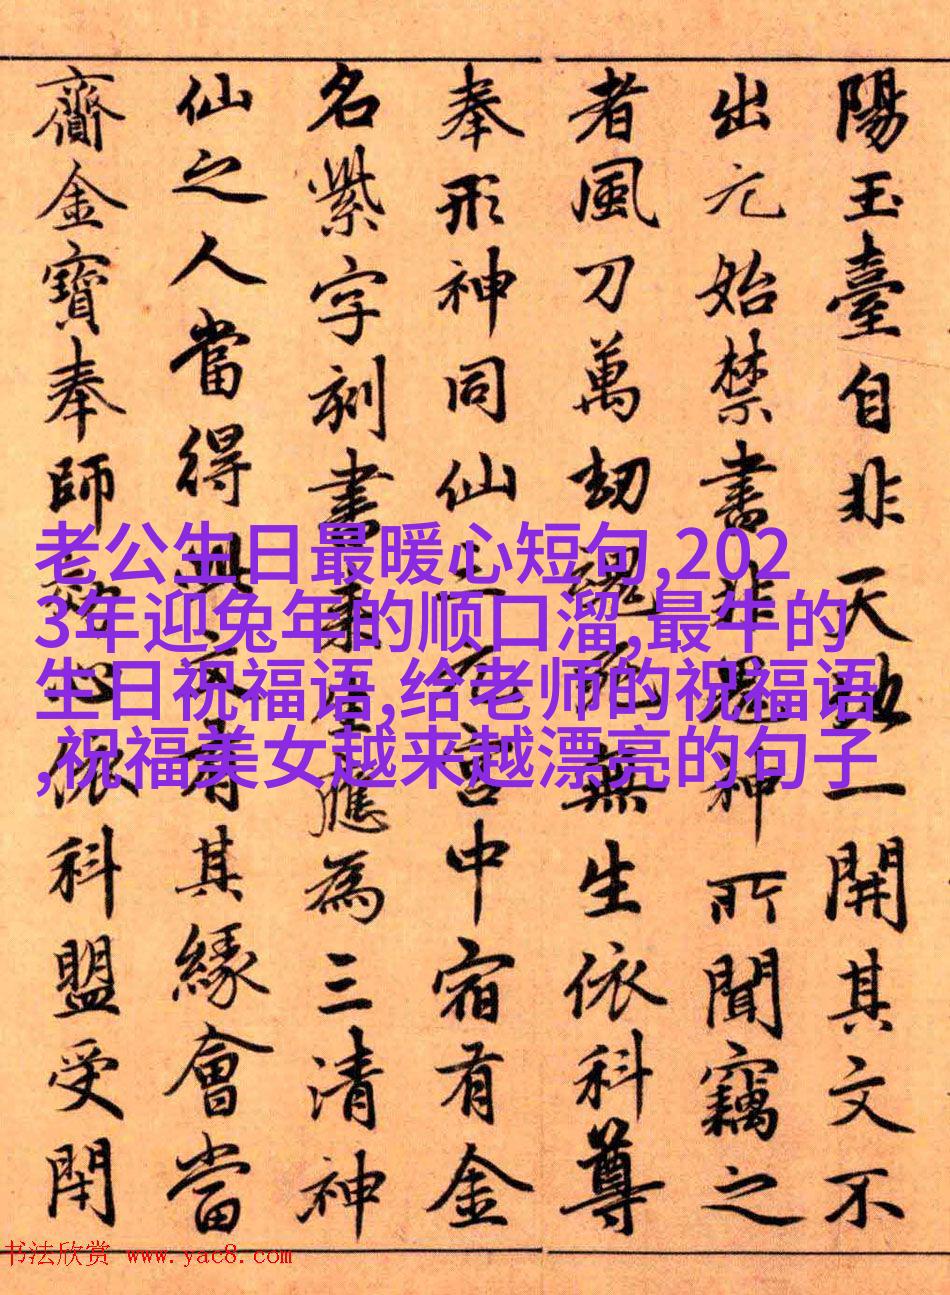 陽玉臺自非天地一開其文不
出元始禁書非鬼神所聞竊之
者風刀萬劫魂死無生依科尊
奉形神同仙上元宮中宿有金
名紫字刻書來生應為三清神
仙之人當得文有其緣會當
齎金寶奉師効心依科盟受閇
老公生日最暖心短句,202
3年迎兔年的顺口溜,最牛的
生日祝福语,给老师的祝福语
,祝福美女越来越漂亮的句子
书法欣赏 www.yac8.com